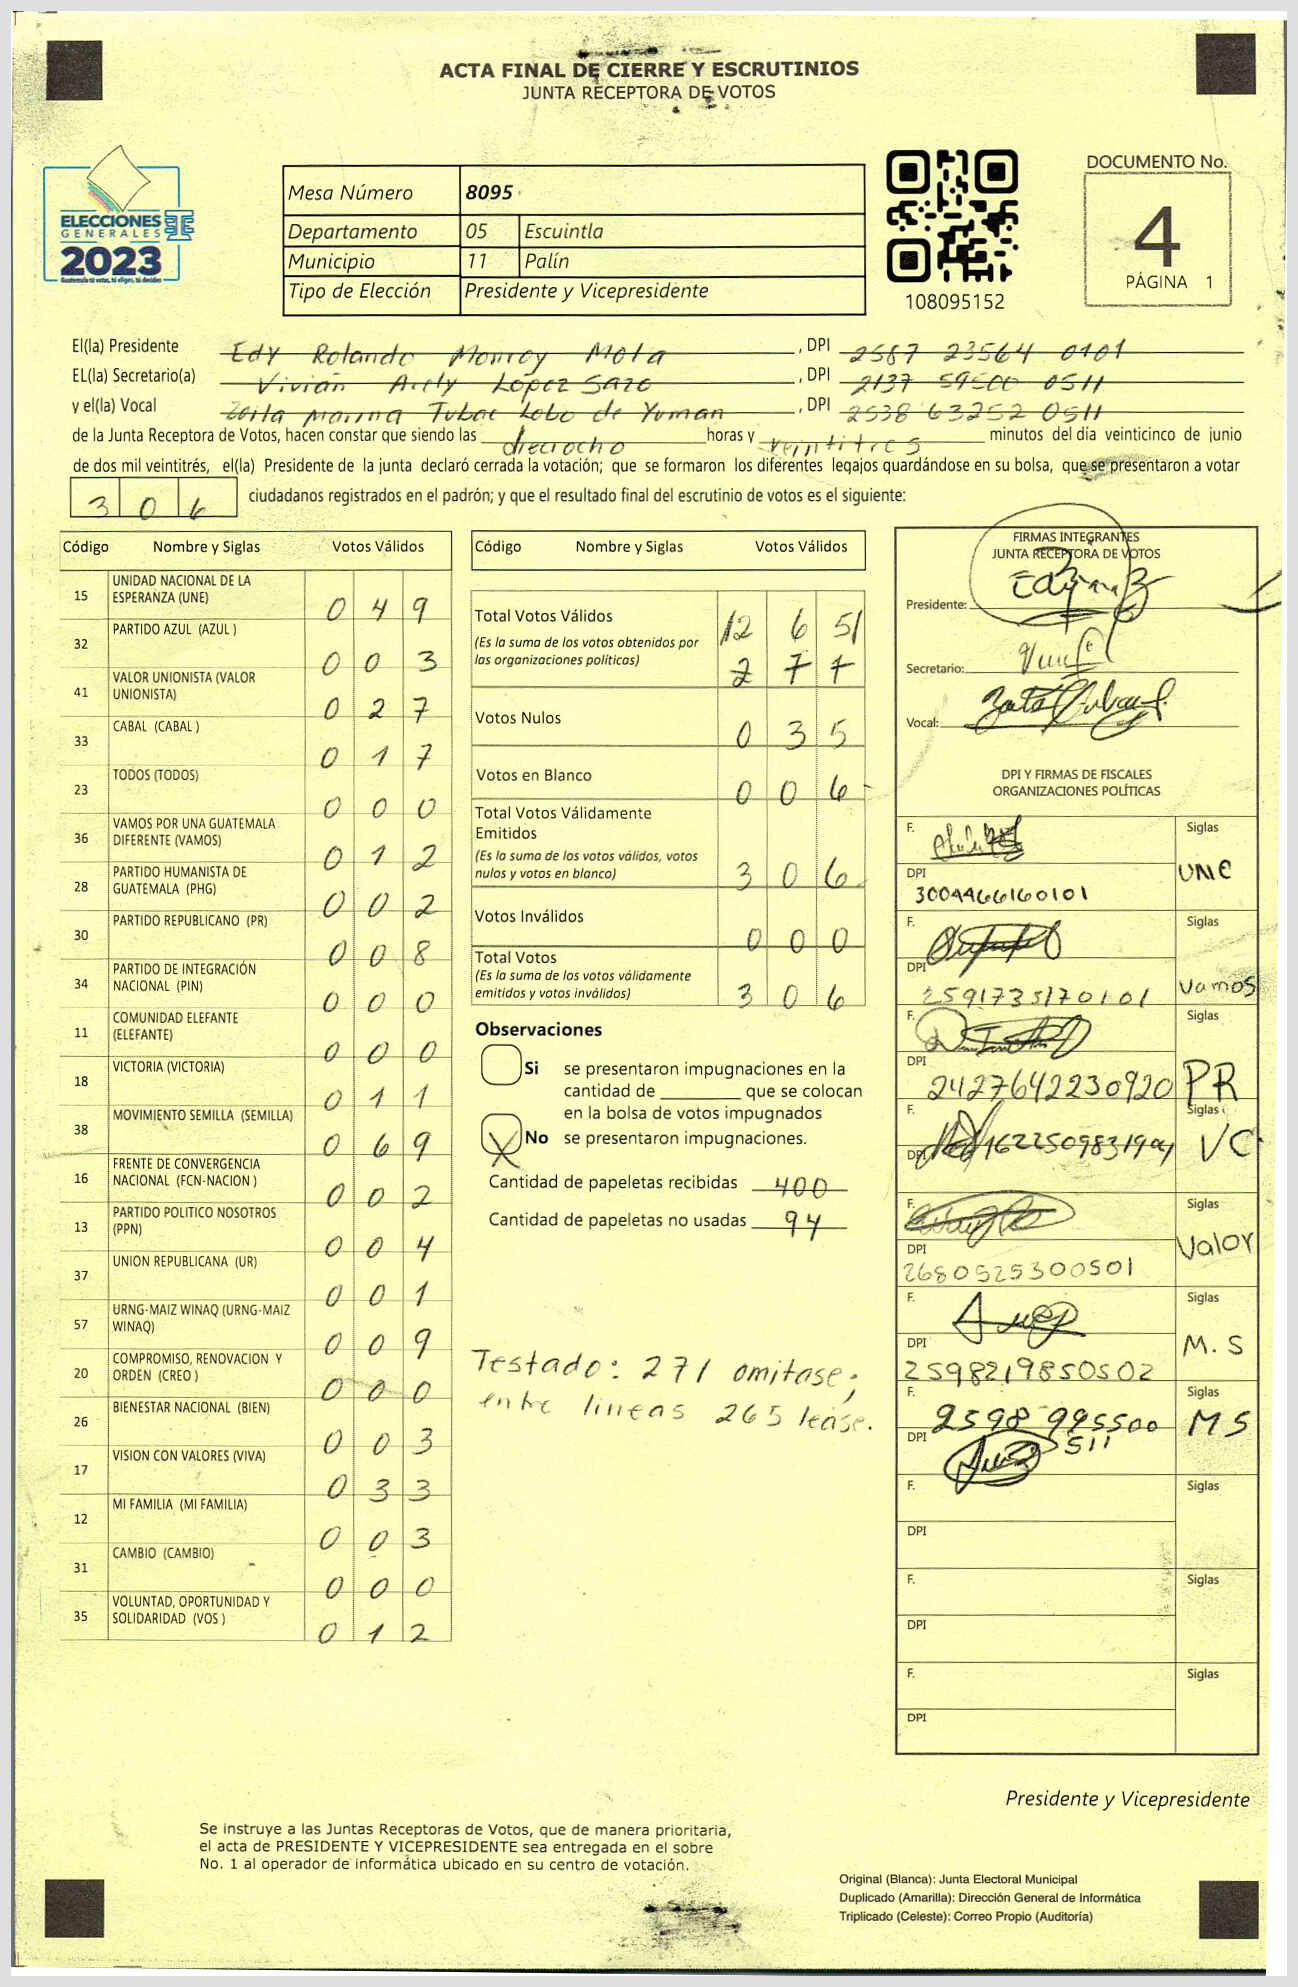 ACTA FINAL DE CIERRE Y ESCRUTINIOS
JUNTA RECEPTORA DE VOTOS
ELECCIONES
GENERALES
2023
Guatemala tú votas, tú eliges, tú decides
Mesa Número 8095
Departamento 05 Escuintla
Municipio 11 Palín
Tipo de Elección Presidente y Vicepresidente
108095152
DOCUMENTO No.
4
PÁGINA 1
El(la) Presidente Edy Rolando Monroy Mota, DPI 2587 23564 0101
EL(la) Secretario(a) Vivian Arely López Sazo, DPI 2137 59500 0511
y el(la) Vocal Zoila Marina Tubac Lobo de Yuman, DPI 2538 63252 0511
de la Junta Receptora de Votos, hacen constar que siendo las dieciocho horas y veintitres minutos del día veinticinco de junio
de dos mil veintitrés, el(la) Presidente de la junta declaró cerrada la votación; que se formaron los diferentes legajos guardándose en su bolsa, que se presentaron a votar
306 ciudadanos registrados en el padrón; y que el resultado final del escrutinio de votos es el siguiente:
Código Nombre y Siglas Votos Válidos
15 UNIDAD NACIONAL DE LA ESPERANZA (UNE) 0 4 9
32 PARTIDO AZUL (AZUL ) 0 0 3
41 VALOR UNIONISTA (VALOR UNIONISTA) 0 2 7
33 CABAL (CABAL ) 0 1 7
23 TODOS (TODOS) 0 0 0
36 VAMOS POR UNA GUATEMALA DIFERENTE (VAMOS) 0 1 2
28 PARTIDO HUMANISTA DE GUATEMALA (PHG) 0 0 2
30 PARTIDO REPUBLICANO (PR) 0 0 8
34 PARTIDO DE INTEGRACIÓN NACIONAL (PIN) 0 0 0
11 COMUNIDAD ELEFANTE (ELEFANTE) 0 0 0
18 VICTORIA (VICTORIA) 0 1 1
38 MOVIMIENTO SEMILLA (SEMILLA) 0 6 9
16 FRENTE DE CONVERGENCIA NACIONAL (FCN-NACION ) 0 0 2
13 PARTIDO POLITICO NOSOTROS (PPN) 0 0 4
37 UNION REPUBLICANA (UR) 0 0 1
57 URNG-MAIZ WINAQ (URNG-MAIZ WINAQ) 0 0 9
20 COMPROMISO, RENOVACION Y ORDEN (CREO ) 0 0 0
26 BIENESTAR NACIONAL (BIEN) 0 0 3
17 VISION CON VALORES (VIVA) 0 3 3
12 MI FAMILIA (MI FAMILIA) 0 0 3
31 CAMBIO (CAMBIO) 0 0 0
35 VOLUNTAD, OPORTUNIDAD Y SOLIDARIDAD (VOS ) 0 1 2
Código Nombre y Siglas Votos Válidos
Total Votos Válidos /2 6 5/
(Es la suma de los votos obtenidos por
las organizaciones políticas) 2 7 7
Votos Nulos 0 3 5
Votos en Blanco 0 0 6
Total Votos Válidamente
Emitidos
(Es la suma de los votos válidos, votos
nulos y votos en blanco) 3 0 6
Votos Inválidos 0 0 0
Total Votos
(Es la suma de los votos válidamente
emitidos y votos inválidos) 3 0 6
Observaciones
Si se presentaron impugnaciones en la
cantidad de ________ que se colocan
en la bolsa de votos impugnados
X No se presentaron impugnaciones.
Cantidad de papeletas recibidas 400
Cantidad de papeletas no usadas 94
Testado: 271 omitase;
entre lineas 265 lease.
FIRMAS INTEGRANTES
JUNTA RECEPTORA DE VOTOS
Presidente:
Secretario:
Vocal:
DPI Y FIRMAS DE FISCALES
ORGANIZACIONES POLÍTICAS
F. Siglas
DPI 3004466160101 UNE
F. Siglas
DPI 2591735170101 Vamos
F. Siglas
DPI 2427642230920 PR
F. Siglas
DPI VC
F. Siglas
DPI 2680525300501 Valor
F. Siglas
DPI 2598219850502 M.S
F. Siglas
2598 995500 MS
DPI 511
F. Siglas
DPI
F. Siglas
DPI
F. Siglas
DPI
Presidente y Vicepresidente
Se instruye a las Juntas Receptoras de Votos, que de manera prioritaria,
el acta de PRESIDENTE Y VICEPRESIDENTE sea entregada en el sobre
No. 1 al operador de informática ubicado en su centro de votación.
Original (Blanca): Junta Electoral Municipal
Duplicado (Amarilla): Dirección General de Informática
Triplicado (Celeste): Correo Propio (Auditoría)